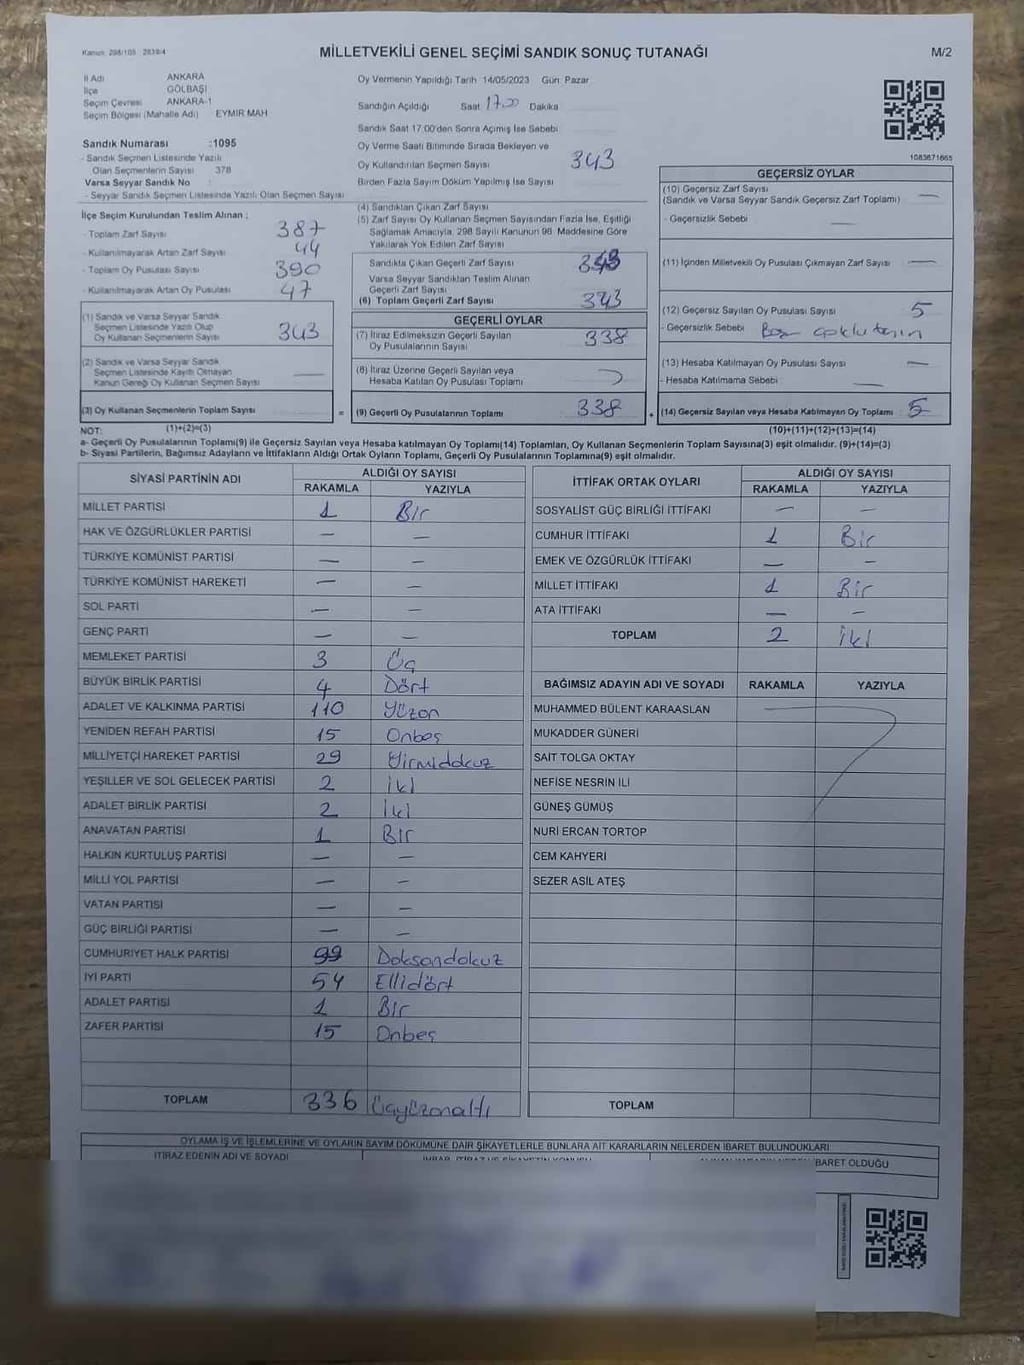 Kanun: 298/105 2839/4
MİLLETVEKİLİ GENEL SEÇİMİ SANDIK SONUÇ TUTANAĞI
M/2
İl Adı ANKARA
İlçe GÖLBAŞI
Seçim Çevresi ANKARA-1
Seçim Bölgesi (Mahalle Adı) EYMİR MAH
Sandık Numarası :1095
- Sandık Seçmen Listesinde Yazılı
Olan Seçmenlerin Sayısı 378
Varsa Seyyar Sandık No :
- Seyyar Sandık Seçmen Listesinde Yazılı Olan Seçmen Sayısı
Oy Vermenin Yapıldığı Tarih 14/05/2023 Gün Pazar
Sandığın Açıldığı Saat 17.00 Dakika
Sandık Saat 17.00'den Sonra Açımış İse Sebebi
Oy Verme Saati Bitiminde Sırada Bekleyen ve
Oy Kullandırılan Seçmen Sayısı 343
Birden Fazla Sayım Döküm Yapılmış İse Sayısı
1083671665
İlçe Seçim Kurulundan Teslim Alınan ;
- Toplam Zarf Sayısı 387
- Kullanılmayarak Artan Zarf Sayısı 44
- Toplam Oy Pusulası Sayısı 390
- Kullanılmayarak Artan Oy Pusulası 47
(1) Sandık ve Varsa Seyyar Sandık
Seçmen Listesinde Yazılı Olup
Oy Kullanan Seçmenlerin Sayısı 343
(2) Sandık ve Varsa Seyyar Sandık
Seçmen Listesinde Kayıtlı Olmayan
Kanun Gereği Oy Kullanan Seçmen Sayısı —
(3) Oy Kullanan Seçmenlerin Toplam Sayısı
(4) Sandıktan Çıkan Zarf Sayısı
(5) Zarf Sayısı Oy Kullanan Seçmen Sayısından Fazla İse, Eşitliği
Sağlamak Amacıyla, 298 Sayılı Kanunun 98. Maddesine Göre
Yakılarak Yok Edilen Zarf Sayısı
Sandıkta Çıkan Geçerli Zarf Sayısı 343
Varsa Seyyar Sandıktan Teslim Alınan
Geçerli Zarf Sayısı
(6) Toplam Geçerli Zarf Sayısı 343
GEÇERLİ OYLAR
(7) İtiraz Edilmeksizin Geçerli Sayılan
Oy Pusulalarının Sayısı 338
(8) İtiraz Üzerine Geçerli Sayılan veya
Hesaba Katılan Oy Pusulası Toplamı
= (9) Geçerli Oy Pusulalarının Toplamı 338
GEÇERSİZ OYLAR
(10) Geçersiz Zarf Sayısı
(Sandık ve Varsa Seyyar Sandık Geçersiz Zarf Toplamı) —
- Geçersizlik Sebebi —
(11) İçinden Milletvekili Oy Pusulası Çıkmayan Zarf Sayısı —
(12) Geçersiz Sayılan Oy Pusulası Sayısı 5
- Geçersizlik Sebebi
(13) Hesaba Katılmayan Oy Pusulası Sayısı —
- Hesaba Katılmama Sebebi —
+ (14) Geçersiz Sayılan veya Hesaba Katılmayan Oy Toplamı 5
NOT: (1)+(2)=(3)
(10)+(11)+(12)+(13)=(14)
a- Geçerli Oy Pusulalarının Toplamı(9) ile Geçersiz Sayılan veya Hesaba katılmayan Oy Toplamı(14) Toplamları, Oy Kullanan Seçmenlerin Toplam Sayısına(3) eşit olmalıdır. (9)+(14)=(3)
b- Siyasi Partilerin, Bağımsız Adayların ve İttifakların Aldığı Ortak Oyların Toplamı, Geçerli Oy Pusulalarının Toplamına(9) eşit olmalıdır.
SİYASİ PARTİNİN ADI ALDIĞI OY SAYISI
RAKAMLA YAZIYLA
MİLLET PARTİSİ 1 Bir
HAK VE ÖZGÜRLÜKLER PARTİSİ — —
TÜRKİYE KOMÜNİST PARTİSİ — —
TÜRKİYE KOMÜNİST HAREKETİ — —
SOL PARTİ — —
GENÇ PARTİ — —
MEMLEKET PARTİSİ 3 Üç
BÜYÜK BİRLİK PARTİSİ 4 Dört
ADALET VE KALKINMA PARTİSİ 110 Yüzon
YENİDEN REFAH PARTİSİ 15 Onbeş
MİLLİYETÇİ HAREKET PARTİSİ 29 Yirmidokuz
YEŞİLLER VE SOL GELECEK PARTİSİ 2 İki
ADALET BİRLİK PARTİSİ 2 İki
ANAVATAN PARTİSİ 1 Bir
HALKIN KURTULUŞ PARTİSİ — —
MİLLİ YOL PARTİSİ — —
VATAN PARTİSİ — —
GÜÇ BİRLİĞİ PARTİSİ — —
CUMHURİYET HALK PARTİSİ 99 Doksandokuz
İYİ PARTİ 54 Ellidört
ADALET PARTİSİ 1 Bir
ZAFER PARTİSİ 15 Onbeş
TOPLAM 336 Üçyüzonaltı
İTTİFAK ORTAK OYLARI ALDIĞI OY SAYISI
RAKAMLA YAZIYLA
SOSYALİST GÜÇ BİRLİĞİ İTTİFAKI — —
CUMHUR İTTİFAKI 1 Bir
EMEK VE ÖZGÜRLÜK İTTİFAKI — —
MİLLET İTTİFAKI 1 Bir
ATA İTTİFAKI — —
TOPLAM 2 İki
BAĞIMSIZ ADAYIN ADI VE SOYADI RAKAMLA YAZIYLA
MUHAMMED BÜLENT KARAASLAN
MUKADDER GÜNERİ
SAİT TOLGA OKTAY
NEFİSE NESRİN İLİ
GÜNEŞ GÜMÜŞ
NURİ ERCAN TORTOP
CEM KAHYERİ
SEZER ASİL ATEŞ
TOPLAM
OYLAMA İŞ VE İŞLEMLERİNE VE OYLARIN SAYIM DÖKÜMÜNE DAİR ŞİKAYETLERLE BUNLARA AİT KARARLARIN NELERDEN İBARET BULUNDUKLARI
İTİRAZ EDENİN ADI VE SOYADI
İBARET OLDUĞU